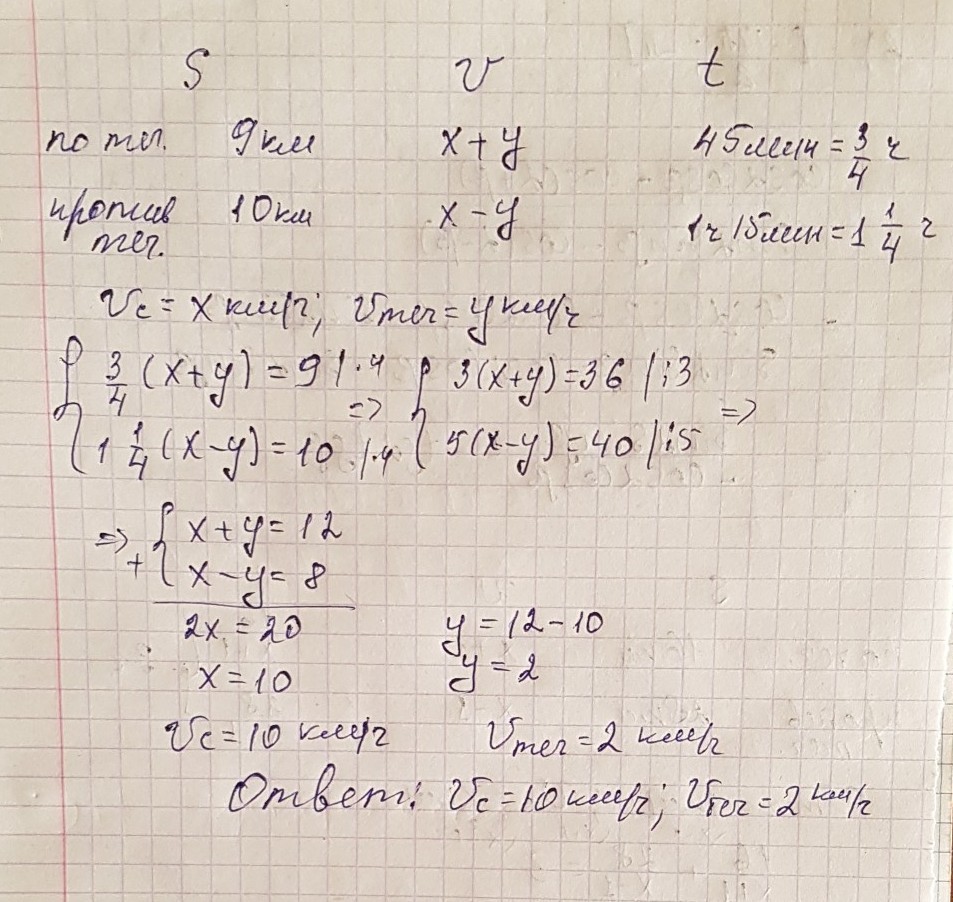 S v t
по теч. 9 км x+y 45 мин = 3/4 ч
против 10 км x-y 1ч 15мин = 1 1/4 ч
теч.
Vc = x км/ч; Vтеч = y км/ч
{ 3/4 (x+y) = 9 |·4 { 3(x+y) = 36 |:3
=> =>
1 1/4 (x-y) = 10 |·4 5(x-y) = 40 |:5
=> { x+y = 12
+ x-y = 8
2x = 20 y = 12-10
x = 10 y = 2
Vc = 10 км/ч Vтеч = 2 км/ч
Ответ: Vc = 10 км/ч; Vтеч = 2 км/ч